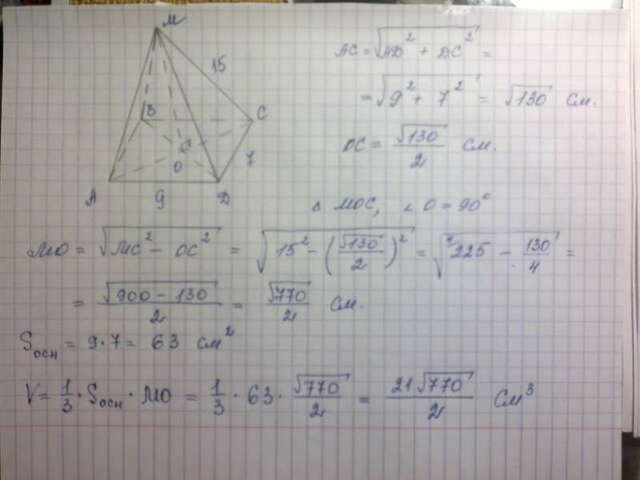 M
15
B
C
O
7
A
9
D
AC = √(AD² + DC²) =
= √(9² + 7²) = √130 см.
OC = √130/2 см.
△ MOC, ∠ O = 90°
MO = √(MC² − OC²) = √(15² − (√130/2)²) = √(225 − 130/4) =
= √(900 − 130)/2 = √770/2 см.
Sосн = 9·7 = 63 см²
V = 1/3 · Sосн · MO = 1/3 · 63 · √770/2 = 21√770/2 см³